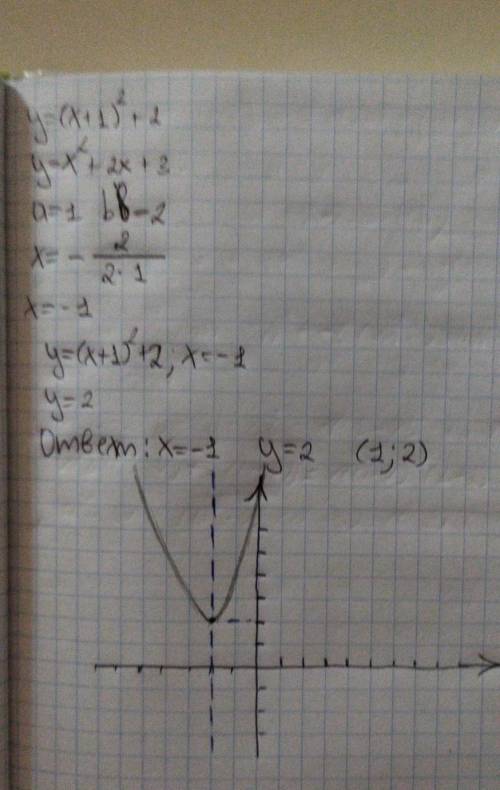 y=(x+1)²+2
y=x²+2x+3
a=1 b=2
x=-2/(2·1)
x=-1
y=(x+1)²+2, x=-1
y=2
Ответ: x=-1 y=2 (1;2)